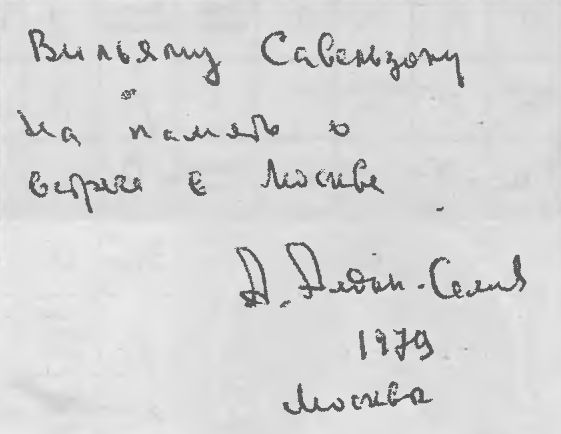 Вильяму Савельзону
На память о
встрече в Москве
А. Алдан-Семенов
1979
Москва